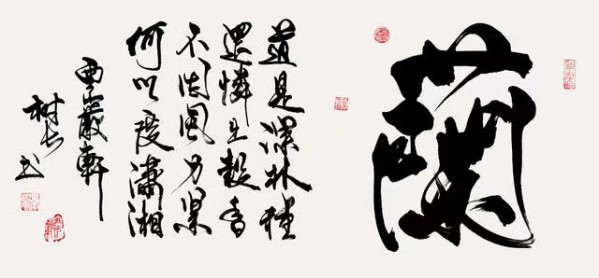 蘭
道是深林種
還憐出穀香
不因風力緊
何以度瀟湘
雲嚴軒
書